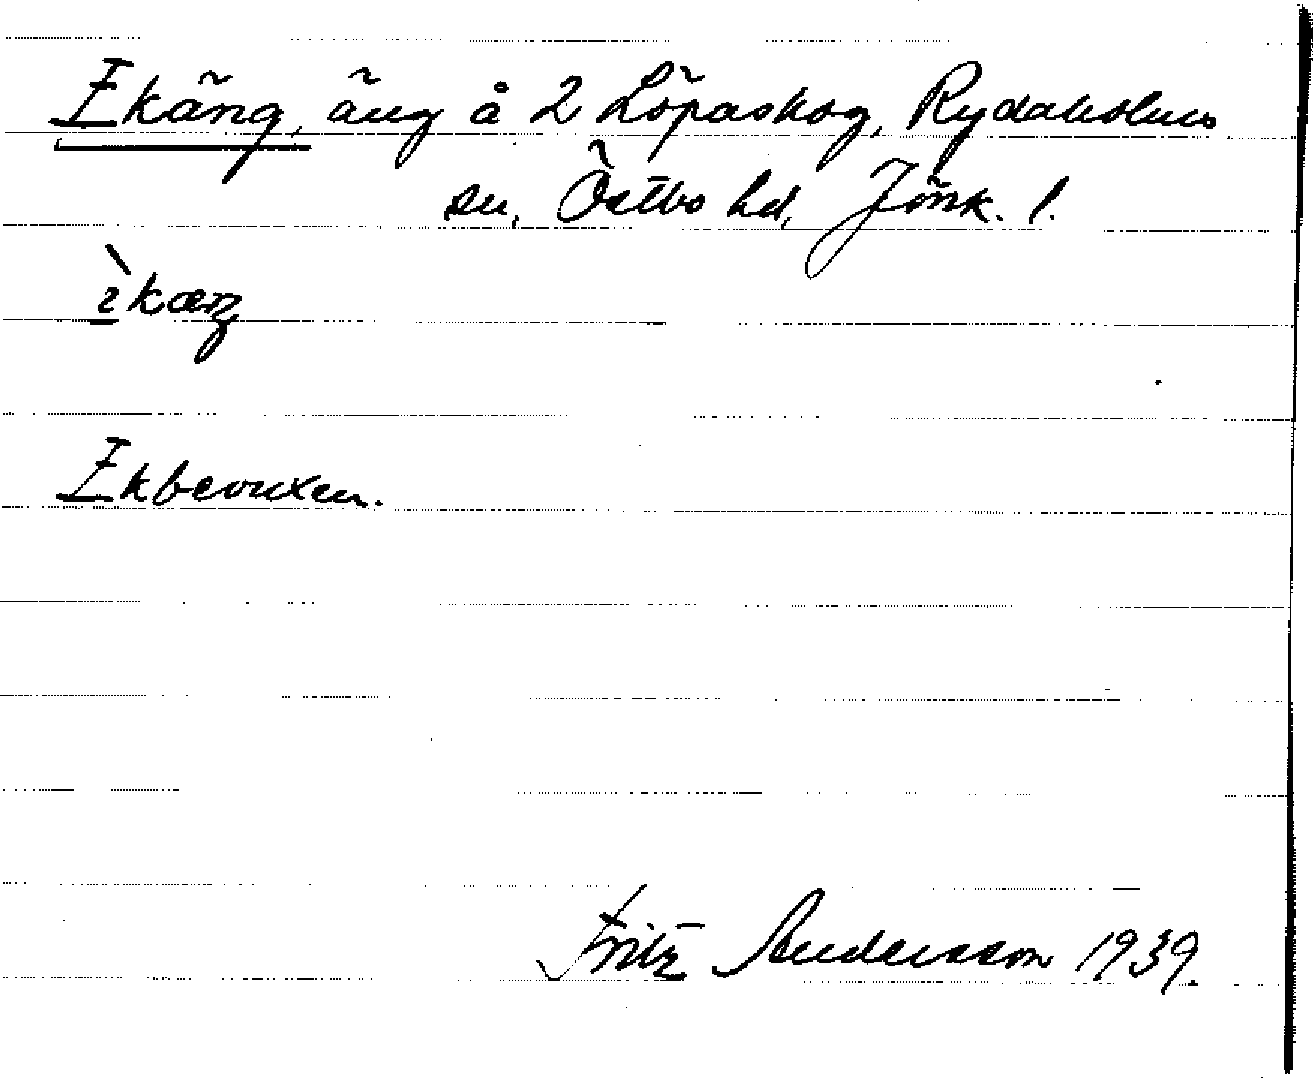 Ekäng, äng å 2 Löpaskog, Rydaholms
sn, Östbo hd, Jönk. l.
Ekbevuxen.
Fritz Andersson 1939.